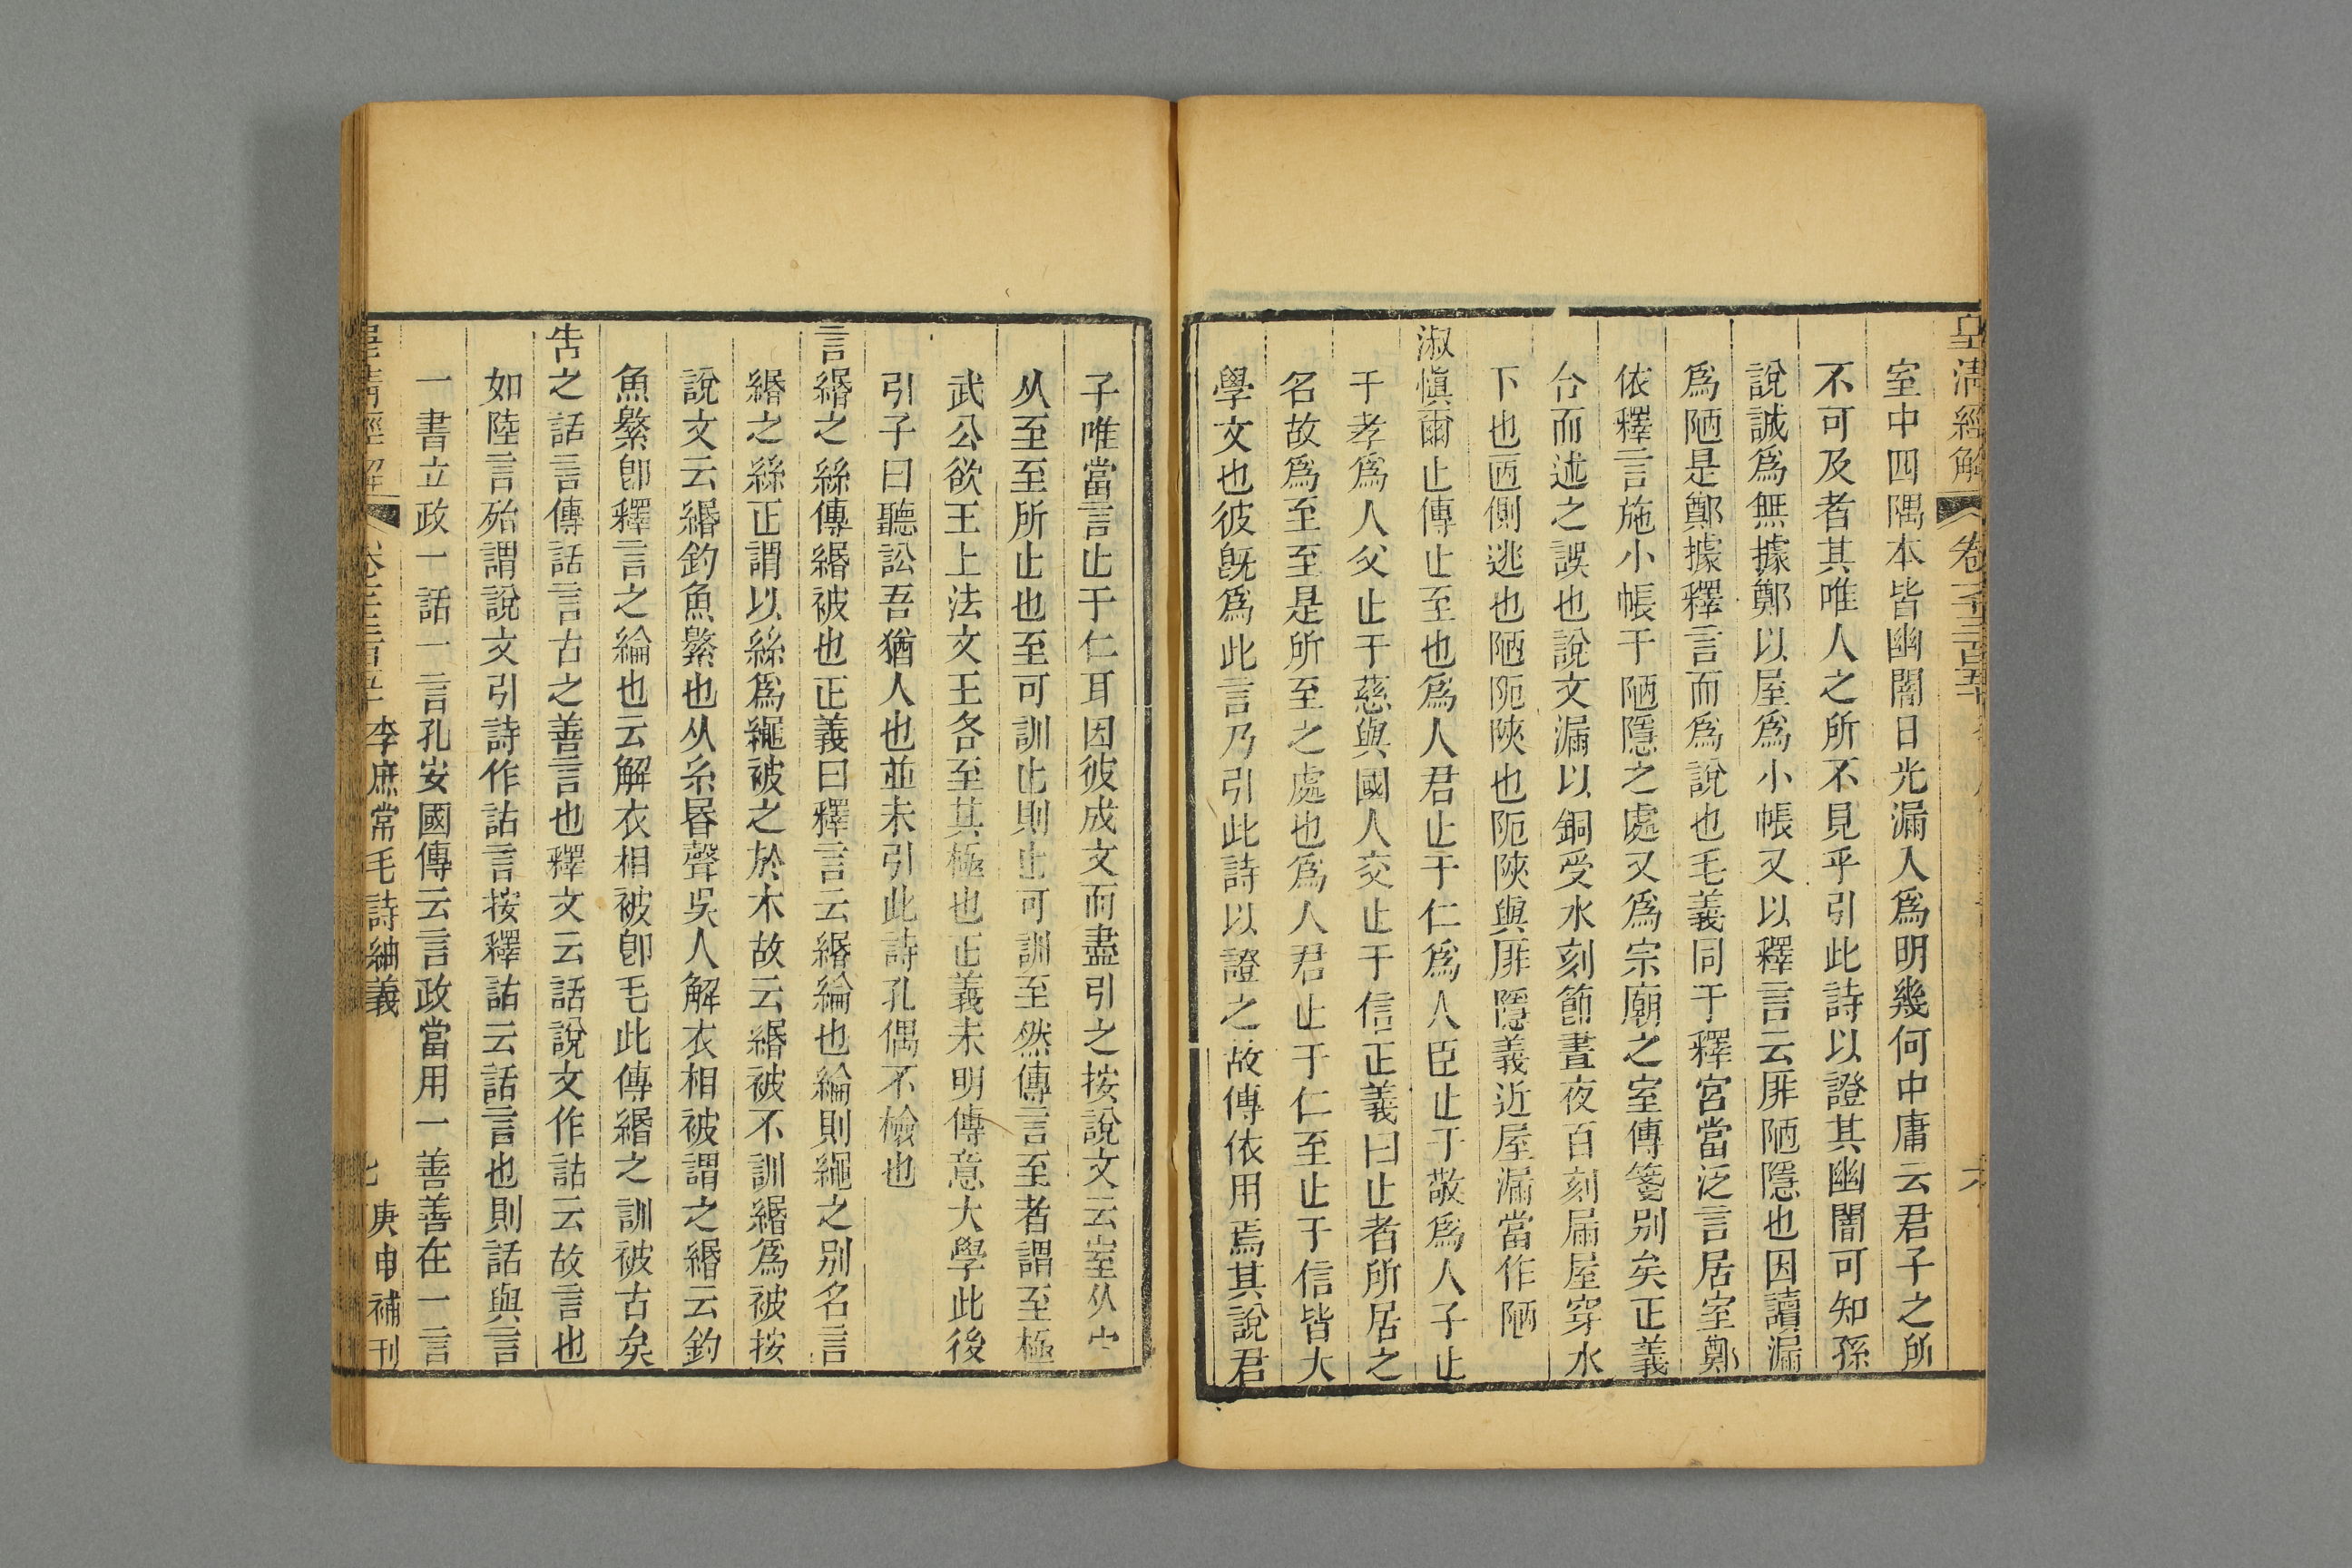 皇清經解 卷 六
室中四隅本皆幽闇日光漏入爲明幾何中庸云君子之所
不可及者其唯人之所不見乎引此詩以證其幽闇可知孫
說誠爲無據鄭以屋爲小帳又以釋言云厞陋隱也因讀漏
爲陋是鄭據釋言而爲說也毛義同于釋宮當泛言居室鄭
依釋言施小帳于陋隱之處又爲宗廟之室傳箋別矣正義
合而述之誤也說文漏以銅受水刻節晝夜百刻屚屋穿水
下也匧側逃也陋阨陝也阨陝與厞隱義近屋漏當作陋
淑愼爾止傳止至也爲人君止于仁爲人臣止于敬爲人子止
于孝爲人父止于慈與國人交止于信正義曰止者所居之
名故爲至至是所至之處也爲人君止于仁至止于信皆大
學文也彼旣爲此言乃引此詩以證之故傳依用焉其說君
子唯當言止于仁耳因彼成文而盡引之按說文云室从宀
从至至所止也至可訓止則止可訓至然傳言至者謂至極
武公欲王上法文王各至其極也正義未明傳意大學此後
引子曰聽訟吾猶人也並未引此詩孔偶不檢也
言緡之絲傳緡被也正義曰釋言云緡綸也綸則繩之別名言
緡之絲正謂以絲爲繩被之於木故云緡被不訓緡爲被按
說文云緡釣魚繁也从糸昬聲吳人解衣相被謂之緡云釣
魚繁卽釋言之綸也云解衣相被卽毛此傳緡之訓被古矣
告之話言傳話言古之善言也釋文云話說文作詁云故言也
如陸言殆謂說文引詩作詁言按釋詁云話言也則話與言
一書立政一話一言孔安國傳云言政當用一善善在一言
皇清經解 卷 李庶常毛詩紬義 七 庚申補刊